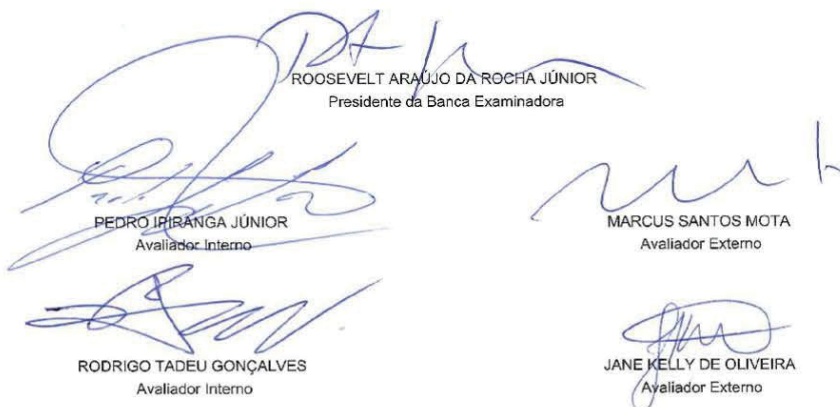 ROOSEVELT ARAÚJO DA ROCHA JÚNIOR
Presidente da Banca Examinadora
PEDRO IPIRANGA JÚNIOR
Avaliador Interno
MARCUS SANTOS MOTA
Avaliador Externo
RODRIGO TADEU GONÇALVES
Avaliador Interno
JANE KELLY DE OLIVEIRA
Avaliador Externo